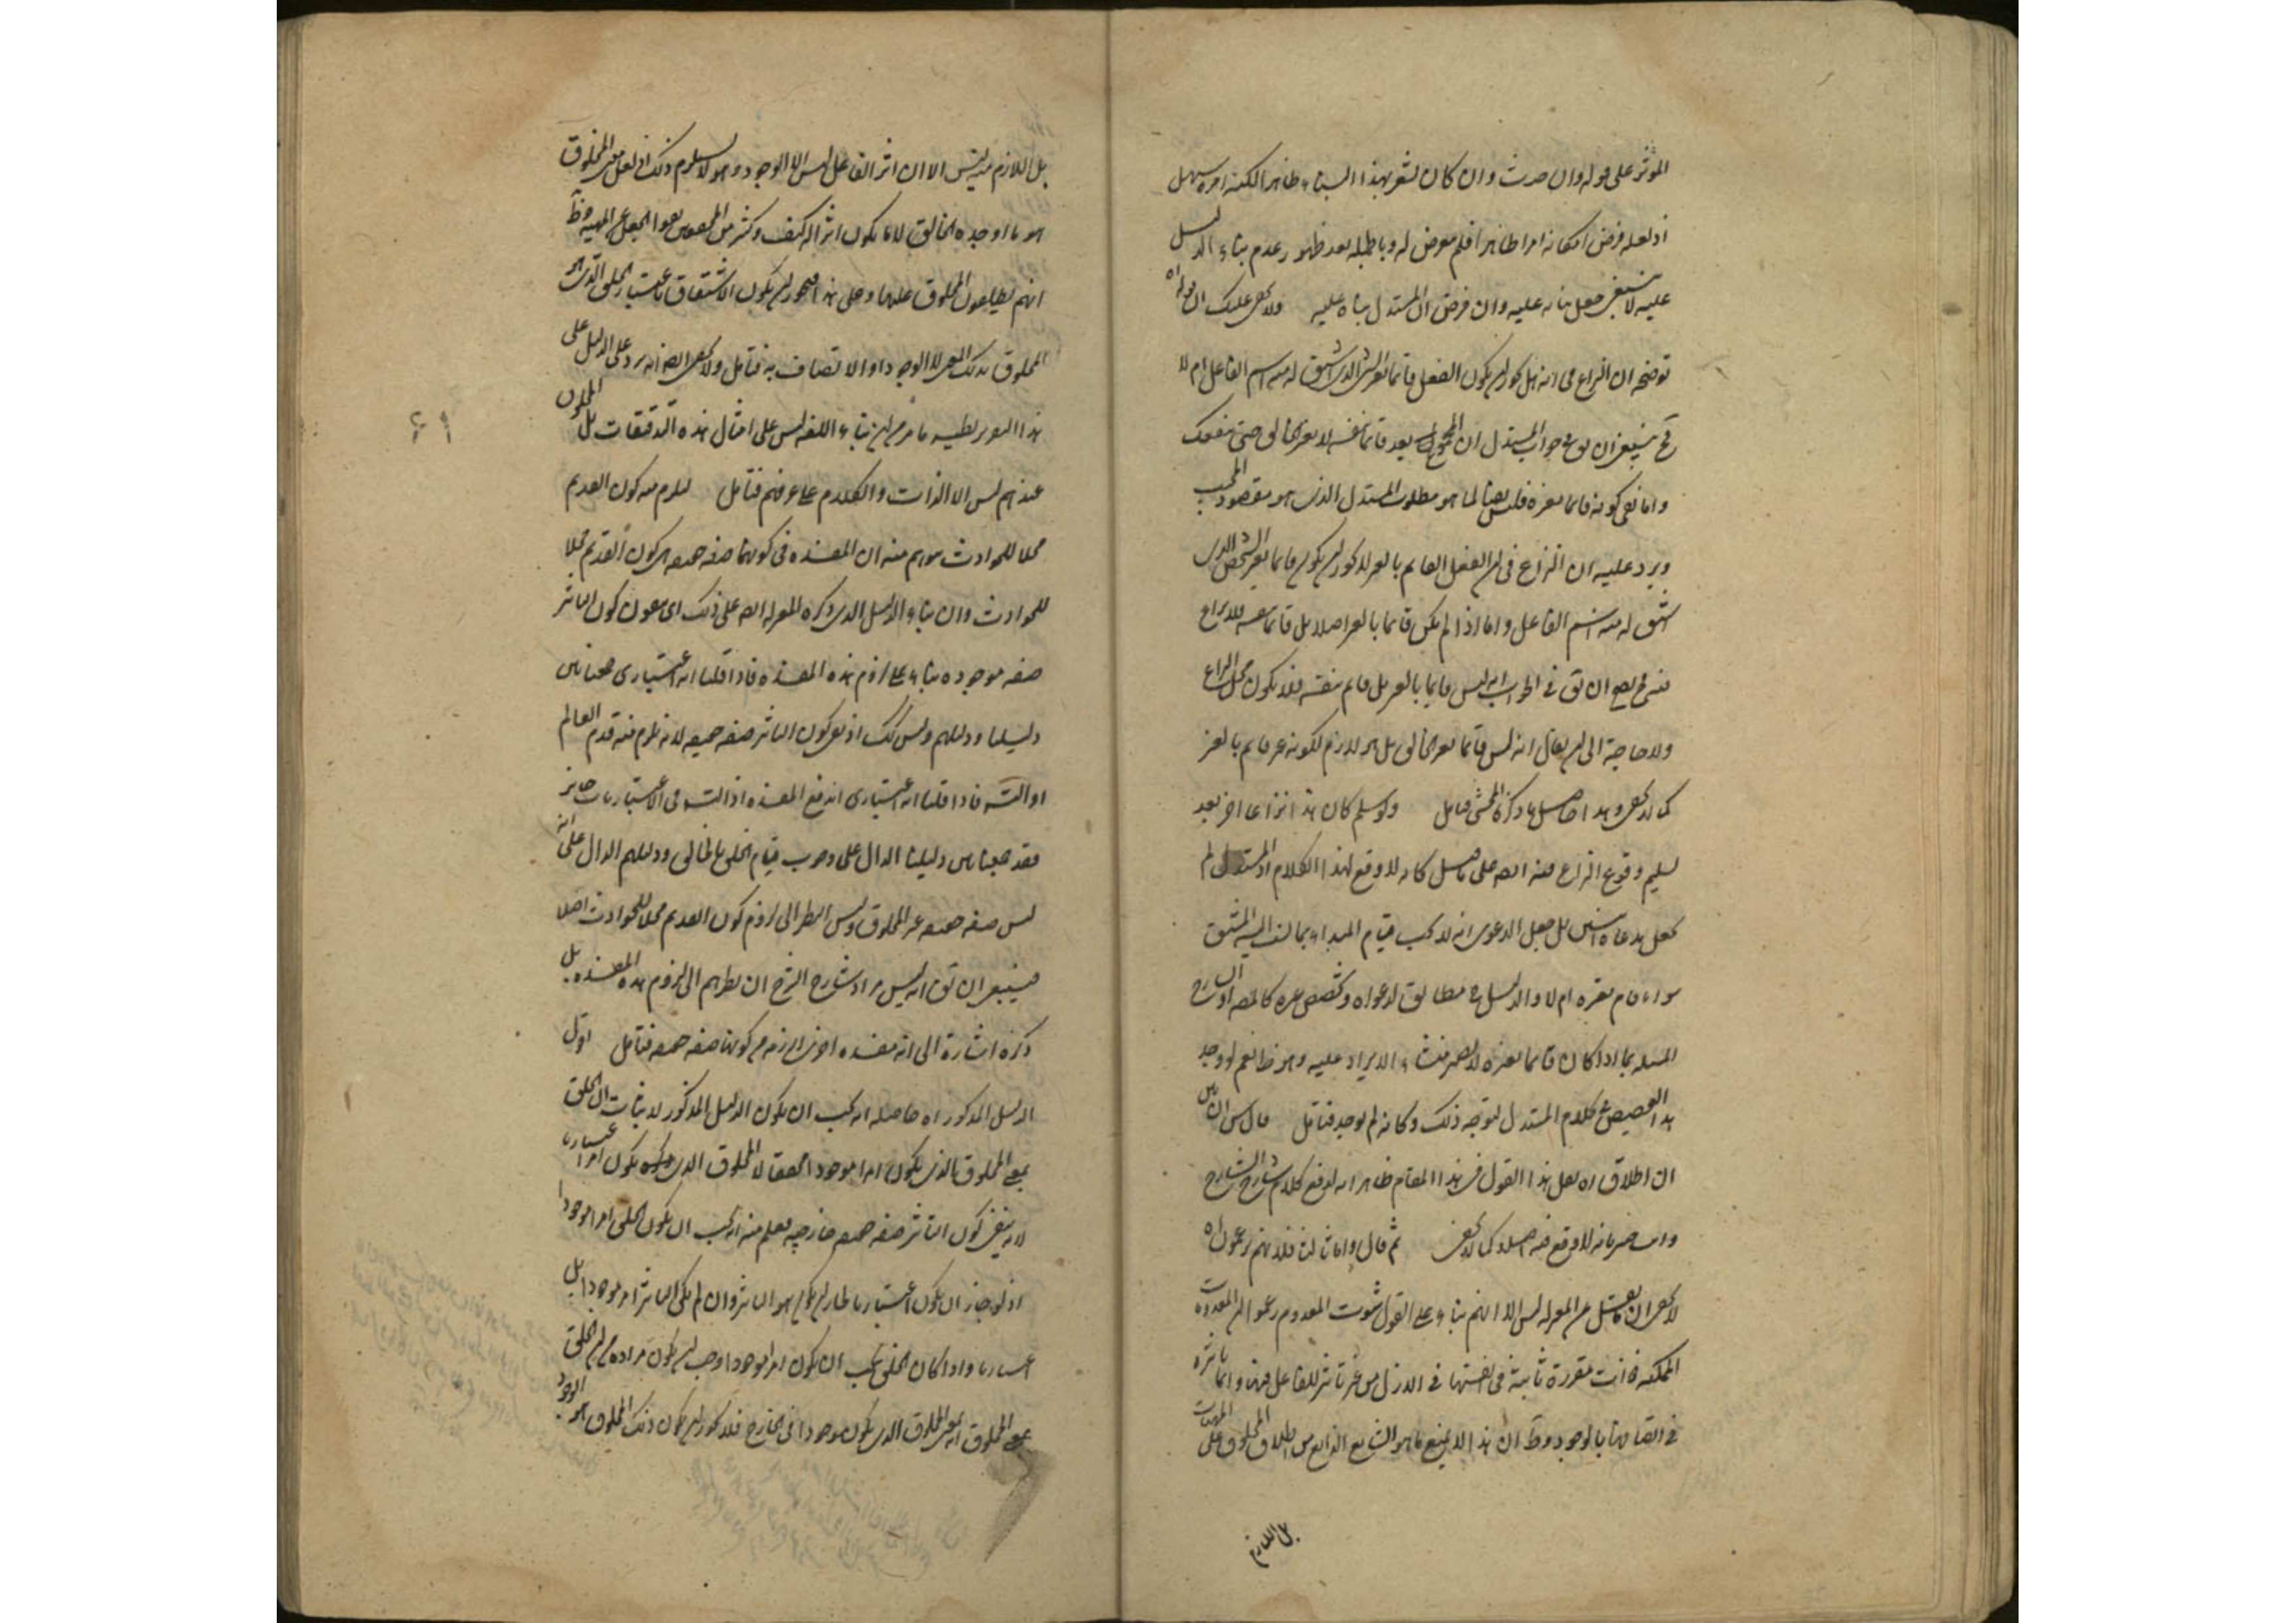 المؤثر على قوله وان حدث وان كان يشعر بهذا البناء ظاهرا لكنه امره سهل
اذ لعله فرض امكانه امرا ظاهرا فلم يتعرض له وبالجملة بعد ظهور عدم بناء الدليل
عليه لا ينبغي جعل بنائه عليه وان فرض ان المستدل بناه عليه ولا يخفى عليك ان قوله اه
توضيحه ان النزاع في انه هل يجوز ان يكون الفعل قائما بغير الشيء الذي اشتق له منه اسم الفاعل ام لا
فح ينبغي ان يق في جواب المستدل ان المجموع يعد قائما بنفسه لا بغيره حتى ينفعك
واما نفي كونه قائما بغيره فليس نافيا لما هو مطلوب المستدل الذي هو مقصود المجيب
ويرد عليه ان النزاع في ان الفعل القائم بالغير لا يجوز ان يكون قائما بغير الشخص الذي
اشتق له منه اسم الفاعل واما اذا لم يكن قائما بالغير اصلا بل قائما بنفسه فلا نزاع
فيه فح يصح ان يق في الجواب انه ليس قائما بالغير بل قائم بنفسه فلا يكون محل النزاع
ولا حاجة الى ان يقال انه ليس قائما بغير الخالق بل هو لازم لكونه غير قائم بالغير
كما لا يخفى وهذا حاصل ما ذكره المحشي فتامل ولو سلم كان هذا نزاعا اخر بعد
تسليم وقوع النزاع فيه ايضا على ما قيل كانه لا وقع لهذا الكلام اذ المستدل لم
يجعل مدعاه اثنين بل جعل الدعوى انه لا يجب قيام المبدا بما نسب اليه المشتق
سواء قام بغيره ام لا والدليل ح مطابق لدعواه وتخصيص غيره كالمصنف او الشارح
المسئلة بما اذا كان قائما بغيره لا يصير منشاء لايراد عليه وهو ظ نعم لو وجد
هذا التخصيص في كلام المستدل لتوجه ذلك وكانه لم يوجد فتامل
ان اطلاق اه لعل هذا القول في هذا المقام ظاهر انه لدفع كلام شارح الشارح
وانت خبير بانه لا وقع فيه اصلا كما لا يخفى ثم قال واما ثالثا فلانهم يزعمون اه
لا يخفى ان ما نقل عن المعتزلة ليس الا انهم بناء على القول بثبوت المعدوم زعموا ان المعدومات
الممكنة كانت مقررة ثابتة في انفسها في الازل من غير تاثير للفاعل فيها وانما تاثيره
في اتصافها بالوجود وظ ان هذا لا يمنع ما هو الشايع الذايع من اطلاق المخلوق على الماهيات
بل اللازم
بل اللازم منه ليس الا ان اثر الفاعل ليس الا الوجود وهو لا يستلزم ذلك اذ لعل معنى المخلوق
هو ما اوجده الخالق لا ما يكون اثرا له كيف وكثير من المحققين نفوا الجعل عن المهية وظ
انهم يطلقون المخلوق عليها وعلى هذا فيجوز ان يكون الاشتقاق باعتبار الخلق الذي هو
المخلوق بذلك المعنى لا الوجود او الاتصاف به فتامل ولا يخفى ايضا انه يرد على الدليل على
هذا التقرير نظير ما مر من ان بناء اللغة ليس على امثال هذه التدقيقات بل المخلوق
عندهم ليس الا الذات والكلام على عرفهم فتامل ليلزم منه كون القديم
محلا للحوادث يوهم منه ان المفسدة في كونها صفة حقيقية هي كون القديم محلا
للحوادث وان بناء الدليل الذي ذكره المعتزلة ايضا على ذلك اي ينفون كون التاثير
صفة موجودة بناء على لزوم هذه المفسدة فاذا قلنا انه اعتباري جمعنا بين
دليلنا ودليلهم وليس كك اذ نفي كون التاثير صفة حقيقية لانه يلزم منه قدم العالم
او التس فاذا قلنا انه اعتباري اندفع المفسدة اذ التس في الاعتباريات جائز
فقد جمعنا بين دليلنا الدال على وجوب قيام الخلق بالخالق ودليلهم الدال على انه
ليس صفة حقيقية غير المخلوق وليس النظر الى لزوم كون القديم محلا للحوادث اصلا
فينبغي ان يق انه ليس مراد شارح الشرح ان نظرهم الى لزوم هذه المفسدة بل
ذكره اشارة الى انه مفسدة اخرى لازمة من كونها صفة حقيقية فتامل اقول
الدليل المذكور اه حاصله انه يجب ان يكون الدليل المذكور لاثبات ان الخلق
بمعنى المخلوق الذي يكون امرا موجودا محققا لا المخلوق الذي يكون امرا اعتباريا
لانه ينفي كون التاثير صفة حقيقية خارجية فعلم منه انه يجب ان يكون الخلق امرا موجودا
اذ لو جاز ان يكون اعتباريا لجاز ان يكون هو التاثير وان لم يكن التاثير امرا موجودا بل
اعتباريا واذا كان الخلق يجب ان يكون امرا موجودا وجب ان يكون مراده من ان الخلق
بمعنى المخلوق انه بمعنى المخلوق الذي يكون موجودا في الخارج فلا يجوز ان يكون ذلك المخلوق هو الوجود